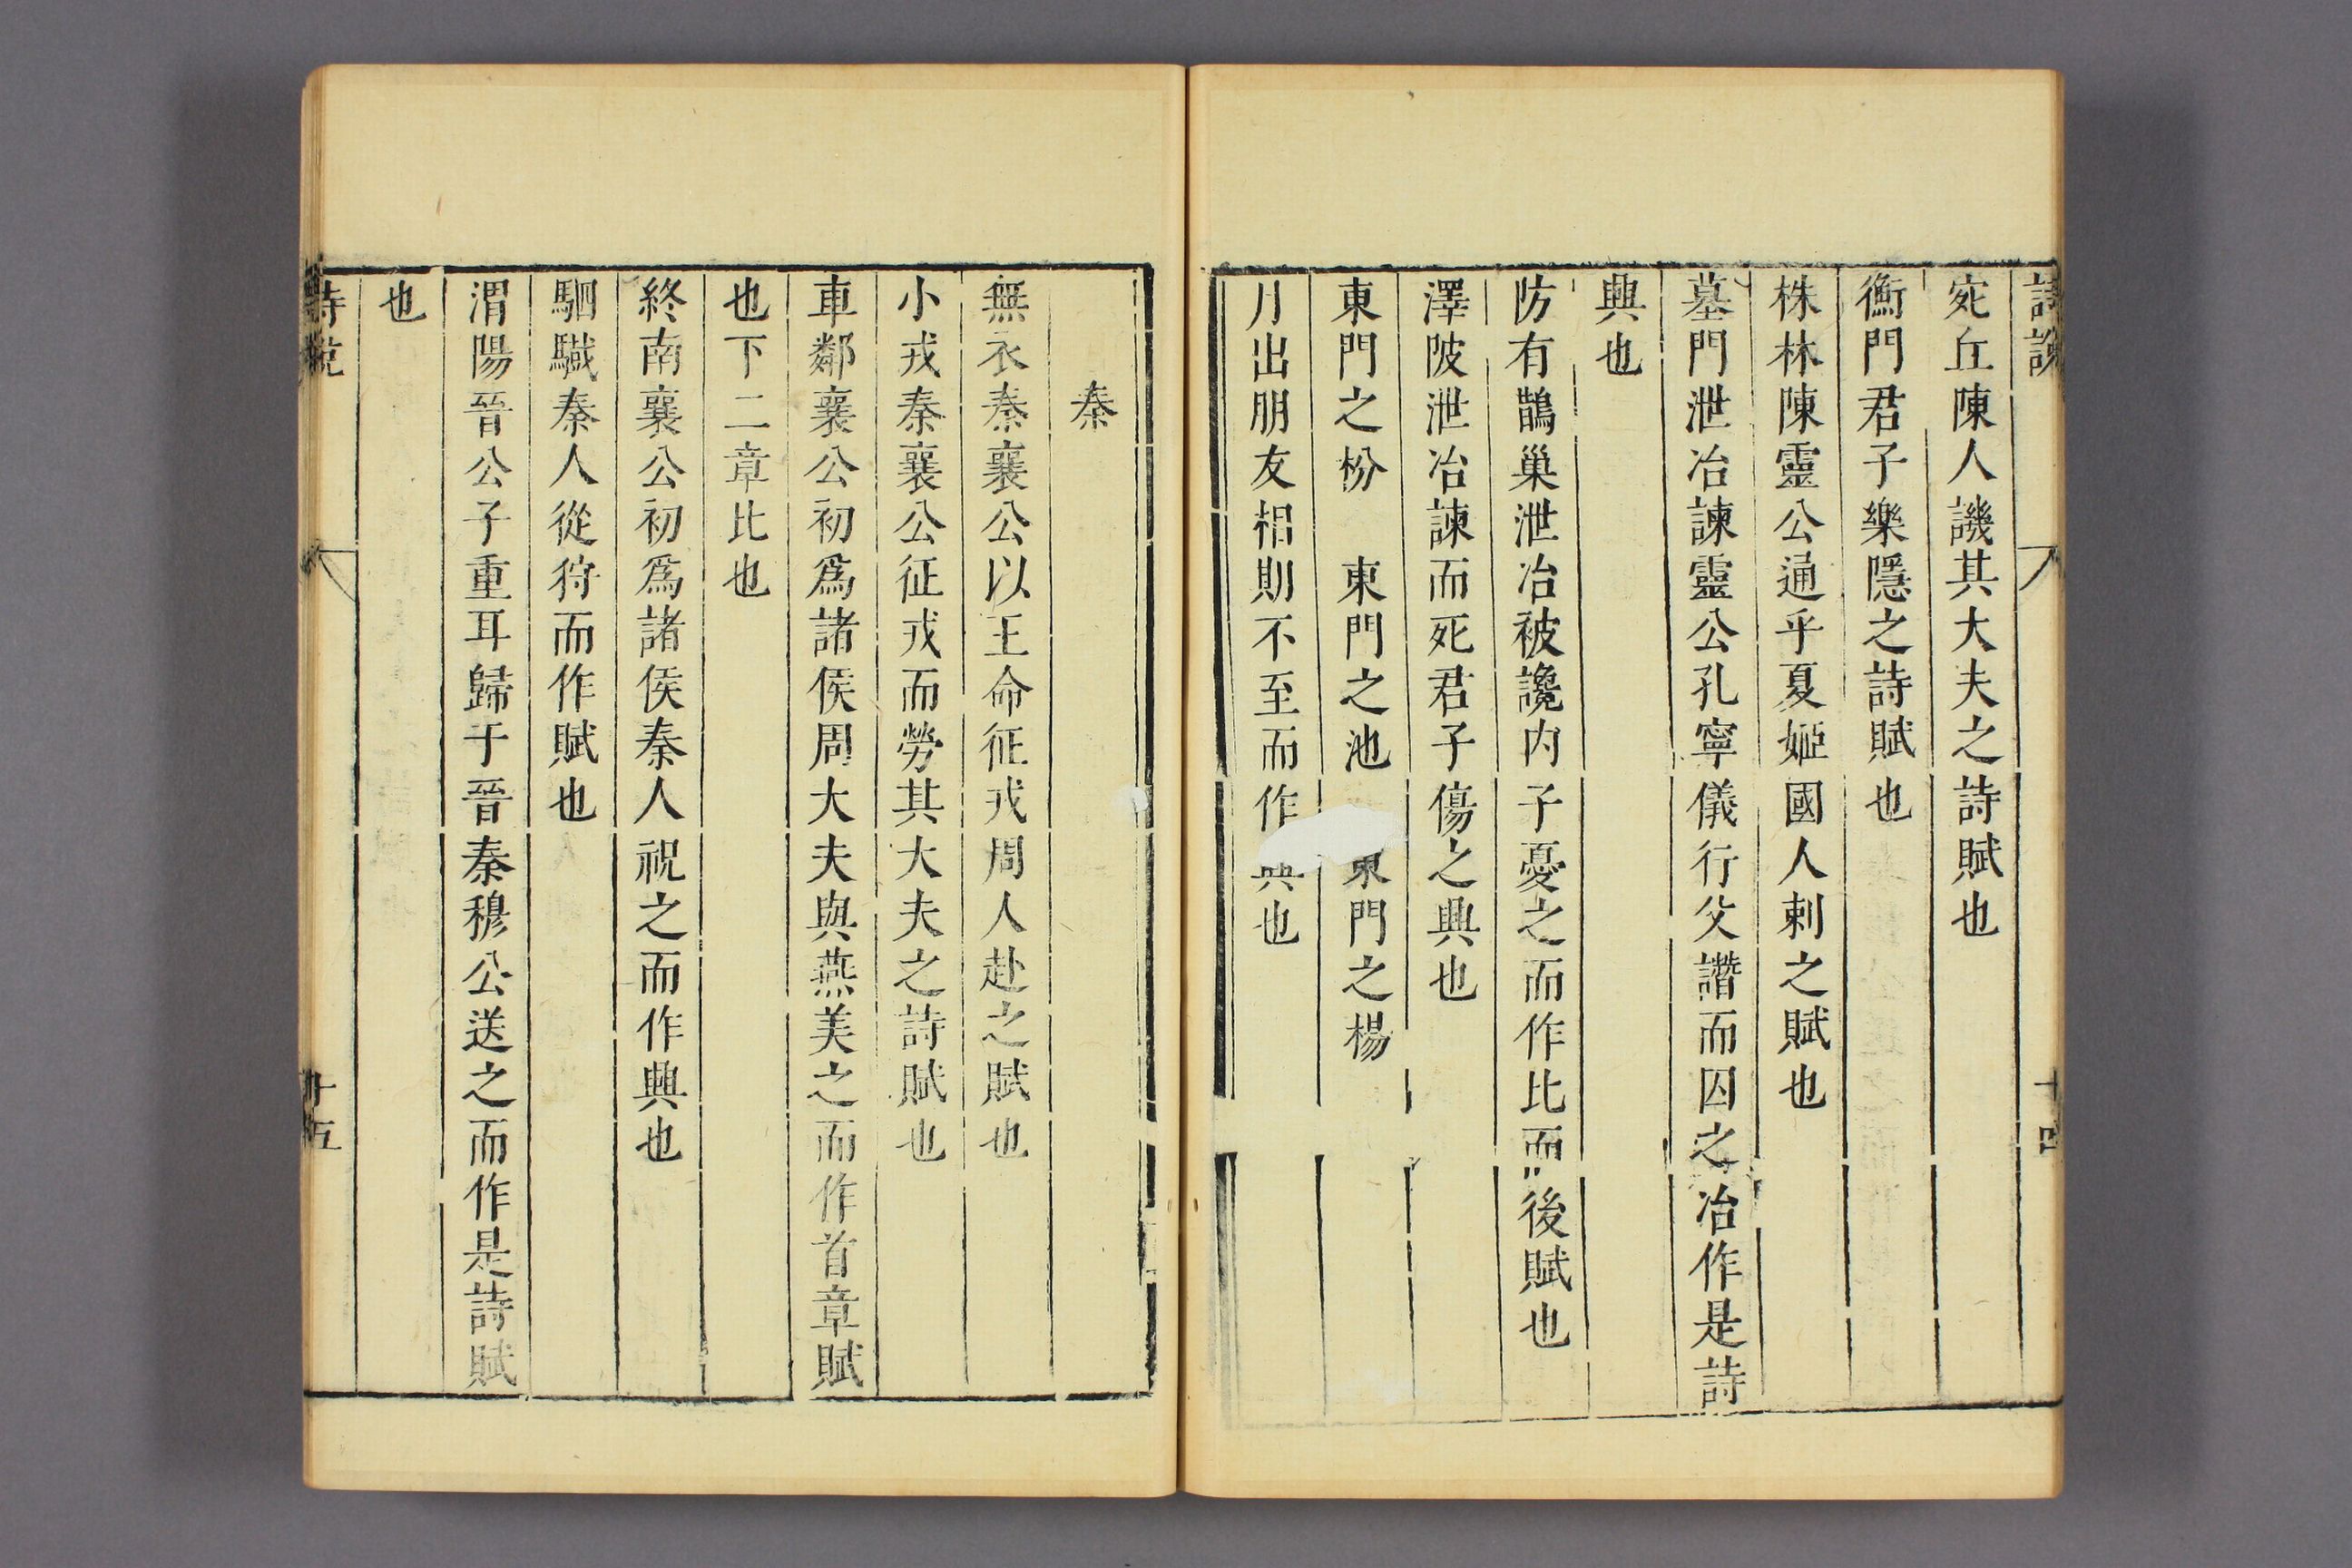 詩說
十四
宛丘陳人譏其大夫之詩賦也
衡門君子樂隱之詩賦也
株林陳靈公通乎夏姬國人刺之賦也
墓門泄冶諫靈公孔寧儀行父譖而囚之冶作是詩
興也
防有鵲巢泄冶被讒內子憂之而作比而後賦也
澤陂泄冶諫而死君子傷之興也
東門之枌　東門之池　東門之楊
月出朋友相期不至而作興也
秦
無衣秦襄公以王命征戎周人赴之賦也
小戎秦襄公征戎而勞其大夫之詩賦也
車鄰襄公初為諸侯周大夫與燕美之而作首章賦
也下二章比也
終南襄公初為諸侯秦人祝之而作興也
駟驖秦人從狩而作賦也
渭陽晉公子重耳歸于晉秦穆公送之而作是詩賦
也
詩說
十五